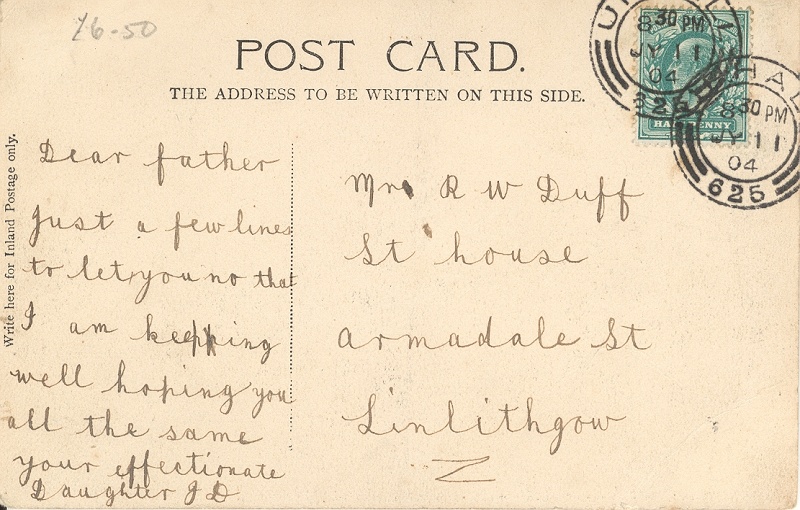 £6-50
POST CARD.
THE ADDRESS TO BE WRITTEN ON THIS SIDE.
8 30 PM
JY 11
04
625
HALFPENNY
HAL
8 30 PM
JY 11
04
625
Write here for Inland Postage only.
Dear father
Just a few lines
to let you no that
I am keeping
well hoping you
all the same
your effectionate
Daughter J D
R W Duff
St house
armadale St
Linlithgow